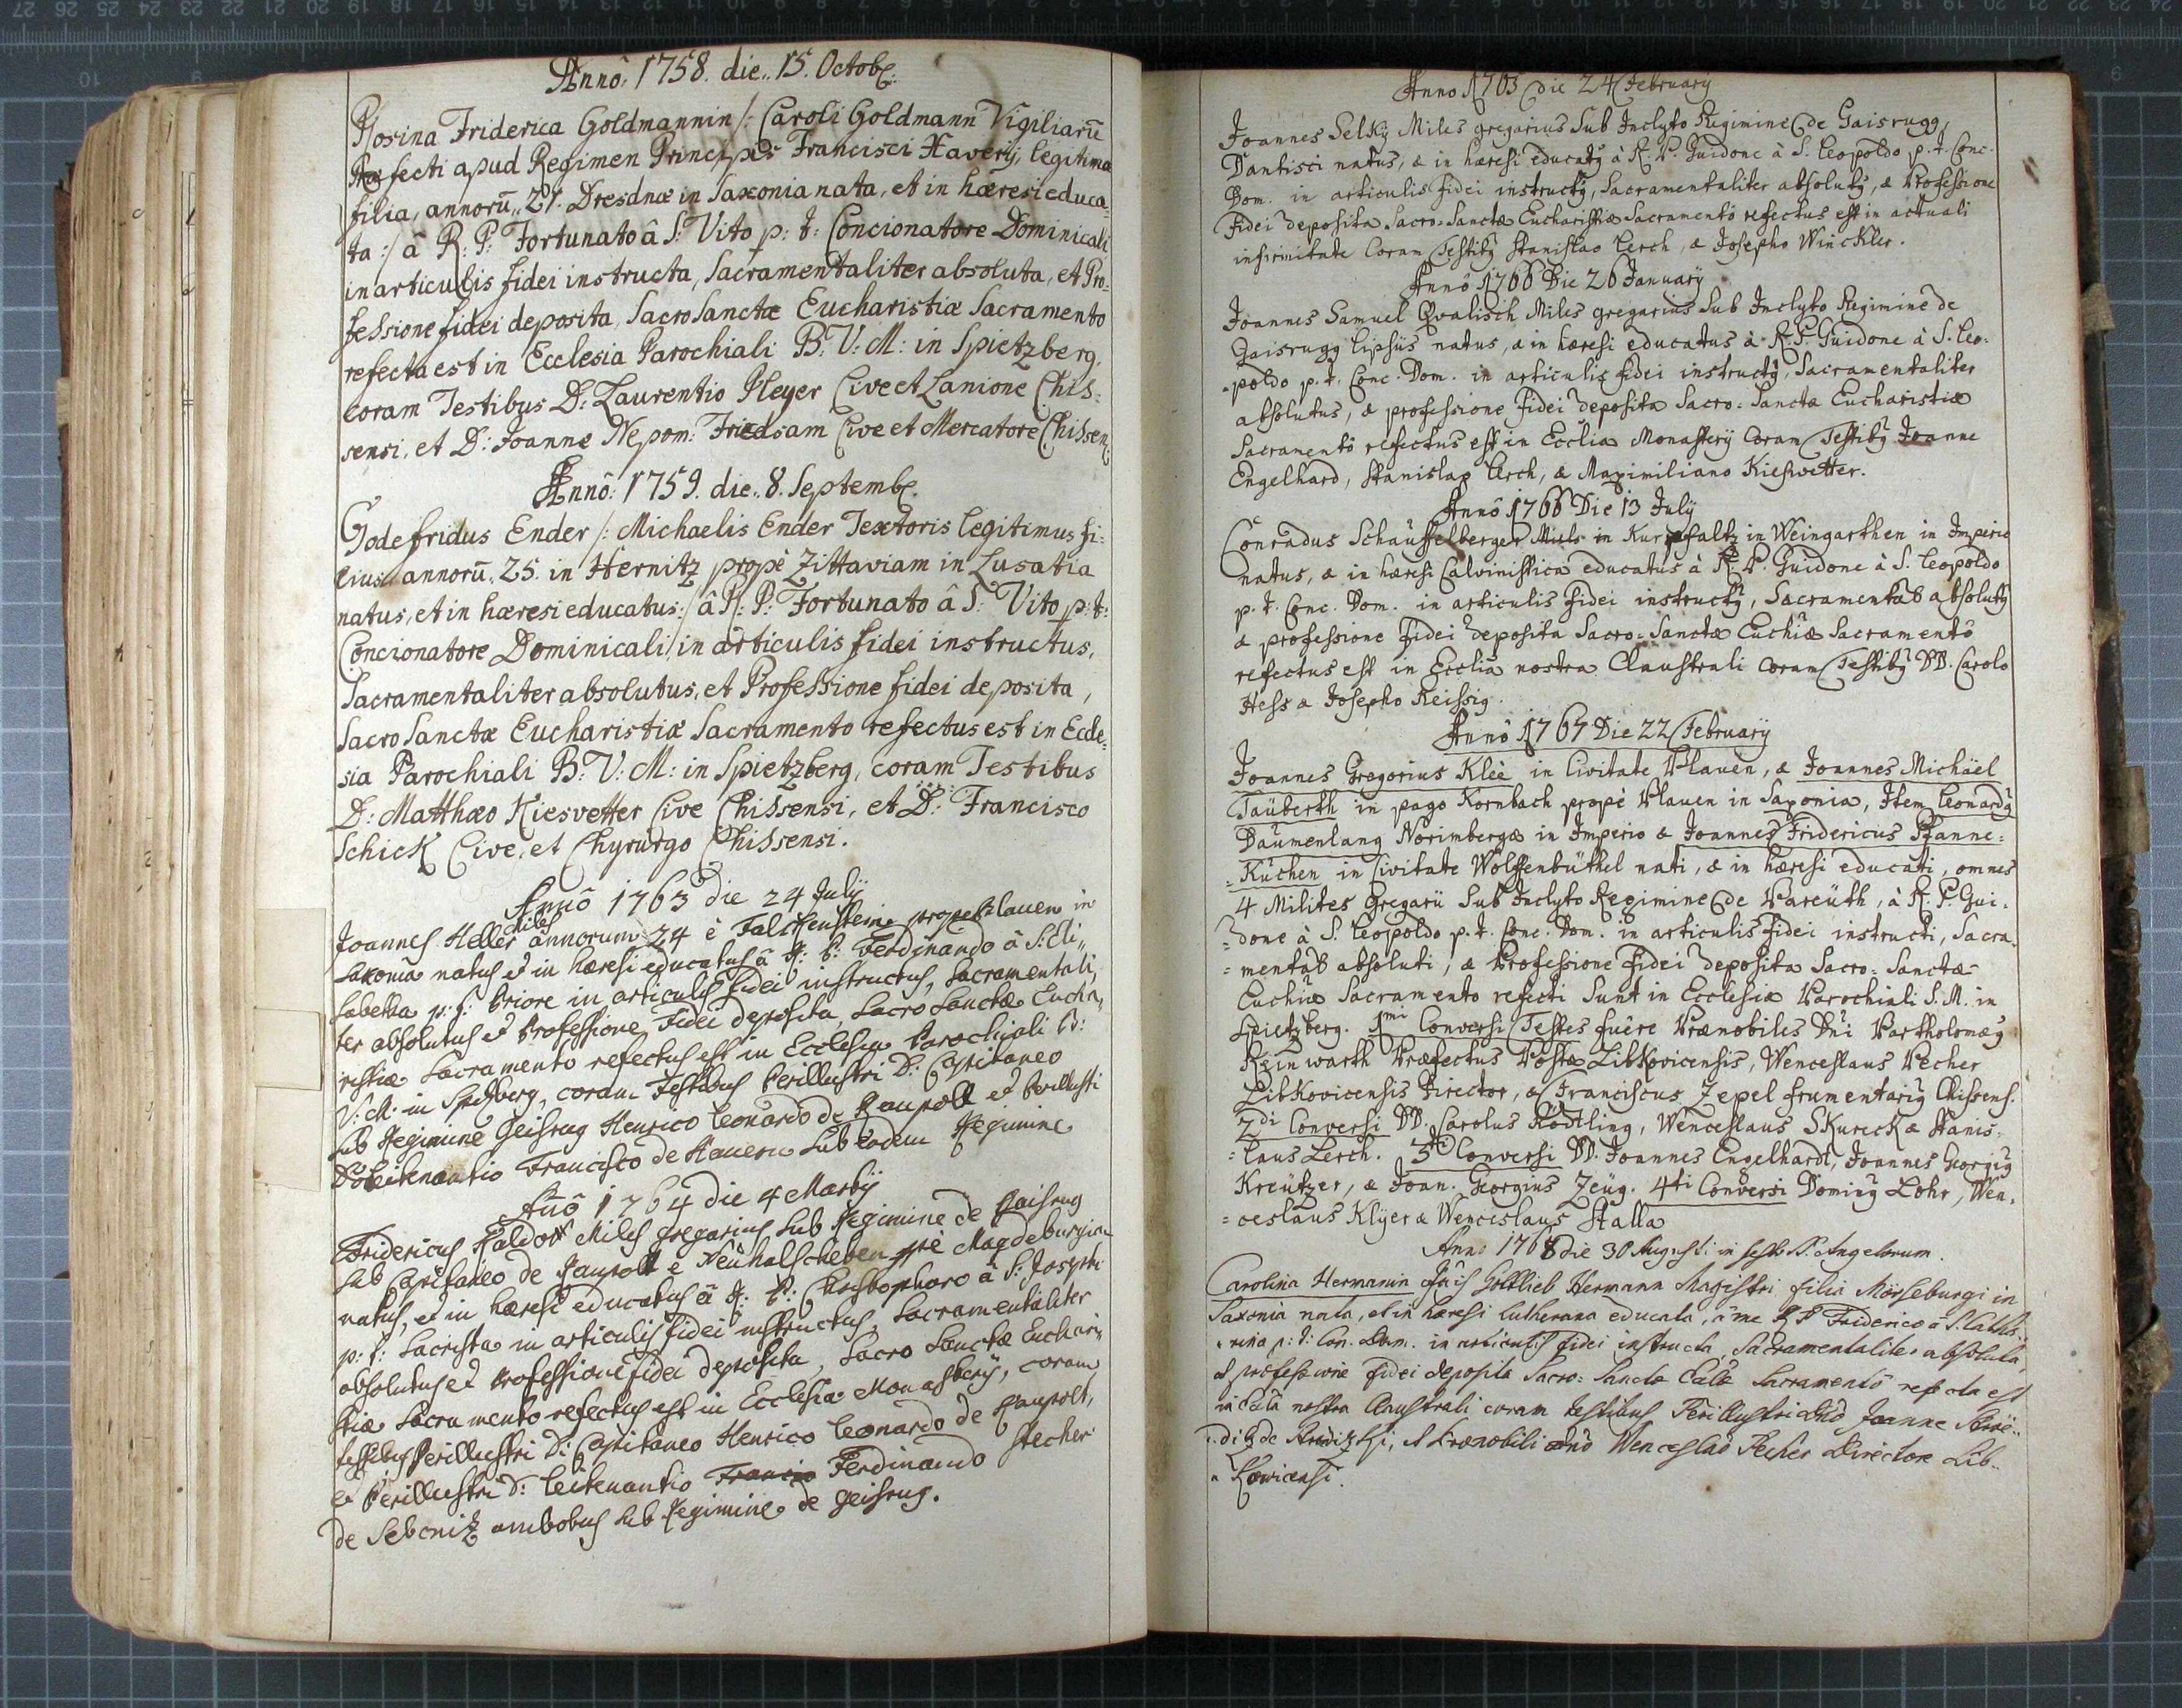 Annô: 1758. die.. 15. Octob:
Rosina Friderica Goldmannin /: Caroli Goldmann Vigiliarū
Præfecti apud Regimen Principis Francisci Xaverij, legitima
filia, annorū,, 27. Dresdnæ in Saxonia nata, et in hæresi educa=
ta :/ â R: P: Fortunato â S: Vito p: t: Concionatore Dominicali
in articulis fidei instructa, Sacramentaliter absoluta, et Pro=
fessione fidei deposita, Sacro Sanctæ Eucharistiæ Sacramento
refecta est in Ecclesia Parochiali B: V: M: in Spietzberg.
coram Testibus D: Laurentio Pleyer Cive et Lanione Chis=
sensi, et D: Joanne Nepom: Friedsam Cive et Mercatore Chissen:
Annô: 1759. die.. 8. Septemb:
Godefridus Ender /: Michaelis Ender Textoris legitimus fi=
lius annorū,, 25. in Hernitz propè Zittaviam in Lusatia
natus, et in hæresi educatus :/ â R: P: Fortunato â S: Vito p: t:
Concionatore Dominicali in articulis fidei instructus,
Sacramentaliter absolutus, et Professione fidei deposita,
Sacro Sanctæ Eucharistiæ Sacramento refectus est in Eccle=
sia Parochiali B: V: M: in Spietzberg, coram Testibus
D: Matthæo Kiesvetter Cive Chissensi, et D: Francisco
Schick Cive, et Chyrurgo Chissensi.
Annô 1763 die 24 Julij
Miles
Joannes Heller annorum 24 è Falckenstein prope Plauen in
Saxonia natus et in hæresi educatus â R: P: Ferdinando â S: Eli,,
sabetha p: t: Priore in articulis fidei instructus, Sacramentali,,
ter absolutus et Professione Fidei deposita, Sacro Sanctæ Eucha,,
ristiæ Sacramento refectus est in Ecclesia Parochiali B:
V: M: in Spitzberg, coram Testibus Perillustri D: Capitaneo
sub Regimine Geisrug Henrico Leonardo de Raupolt et Perillustri
D: Leitenantio Francisco de sub eodem Regimine
Anô 1764 die 4 Martij
Fridericus Miles gregarius sub Regimine de Gaisrug
sub Capitaneo de Raupolt è Neuhalscheben ppè Magdeburgia
natus, et in hæresi educatus â R: P: Christophoro â S: Josepho
p: t: Sacrista in articulis fidei instructus, Sacramentaliter
absolutus et Professione fidei deposita, Sacro Sanctæ Euchari,,
stiæ Sacramento refectus est in Ecclesia Monasterij, coram
testibus Perillustri D: Capitaneo Henrico Leonardo de Raupolt,
et Perillustri D: Leitenantio Ferdinando Stecher
de Sebeniz ambobus sub Regimine de Geisrug.
Anno 1765 die 24 February
Joannes Selky Miles gregarius sub Inclyto Regimine de Gaisrugg,
Dantisci natus, & in hæresi educatȝ à R. P. Guidone à S. Leopoldo p. t. Conc.
Dom. in articulis fidei instructȝ, Sacramentaliter absolutȝ, & Professione
Fidei deposita Sacro=Sanctæ Eucharistiæ Sacramentô refectus est in actuali
infirmitate Coram Testibȝ Stanislao Lerch, & Josepho Winckler.
Annô 1766 Die 26 January
Joannes Samuel Qvalisch Miles gregarius sub Inclyto Regimine de
Gaisrugg Lipsiis natus, & in hæresi educatus à R. P. Guidone à S. Leo=
=poldo p. t. Conc. Dom. in articulis fidei instructȝ, Sacramentaliter
absolutus, & professione fidei deposita Sacro=Sanctæ Eucharistiæ
Sacramentô refectus est in Ecclia Monasterij Coram Testibȝ Joanne
Engelhard, Stanislao Lerch, & Maximiliano Kießwetter.
Annô 1766 Die 13 July
Conradus Schäuffelberger Miles in Kurpfaltz in Weingarthen in Imperio
natus, & in hæresi Calvinistica educatus à R. P. Guidone à S. Leopoldo
p. t. Conc. Dom. in articulis fidei instructȝ, Sacramental absolutȝ
& professione fidei deposita Sacro=Sanctæ Euchiæ Sacramentô
refectus est in Ecclia nostra Claustrali coram Testibȝ DD. Carolo
Hess & Josepho Reissig.
Annô 1767 Die 22 February
Joannes Gregorius Kleè in Civitate Plauen, & Joannes Michäel
Täuberth in pago Kornbach propè Plauen in Saxonia, Item Leonardȝ
Daumenlang Norimbergæ in Imperio & Joannes Fridericus Pfanne=
=Küchen in Civitate Wolffenbüthel nati, & in hæresi educati, omnes
4 Milites Gregarii sub Inclyto Regimine de Pareüth, à R. P. Gui=
=done à S. Leopoldo p. t. Conc. Dom. in articulis fidei instructi, Sacra=
=mental absoluti, & Professione fidei deposita Sacro=Sanctæ
Euchiæ Sacramento refecti sunt in Ecclesia Parochiali S. M. in
Spietzberg. 1mi Conversi Testes fuêre Prænobiles Dni Bartholomæȝ
Reinwarth Præfectus Postæ Libkovicensis, Wenceslaus Pecher
Libkovicensis Director, & Franciscus Zepel frumentariȝ Chissens.
2di Conversi DD. Carolus Rödtling, Wenceslaus Skureck & Stanis=
=laus Lerch. 3ti Conversi DD. Joannes Engelhardt, Joannes Georgiȝ
Kreützer, & Joan. Georgius Zeüg. 4ti Conversi Dominȝ Lohr, Wen=
=ceslaus Klyer & Wenceslaus Stalla
Anno 1768 die 30 Augusti in fest. SS. Angelorum.
Carolina Hermanin Gottlieb Hermann Magistri filia Mörseburgi in
Saxonia nata, et in hæresi Lutherana educata, â me R P Friderico â S. Cathe=
=rina p: t: Con. Dom. in articulis fidei instructa, Sacramentaliter absoluta,
et professione fidei deposita Sacro=Sanctæ Sacramentô refecta est
in nostra Claustrali coram testibus Perillustri Dnô Joanne
de et Prænobili Dnô Wenceslaô Pecher Directore Lib=
=kowicensi.